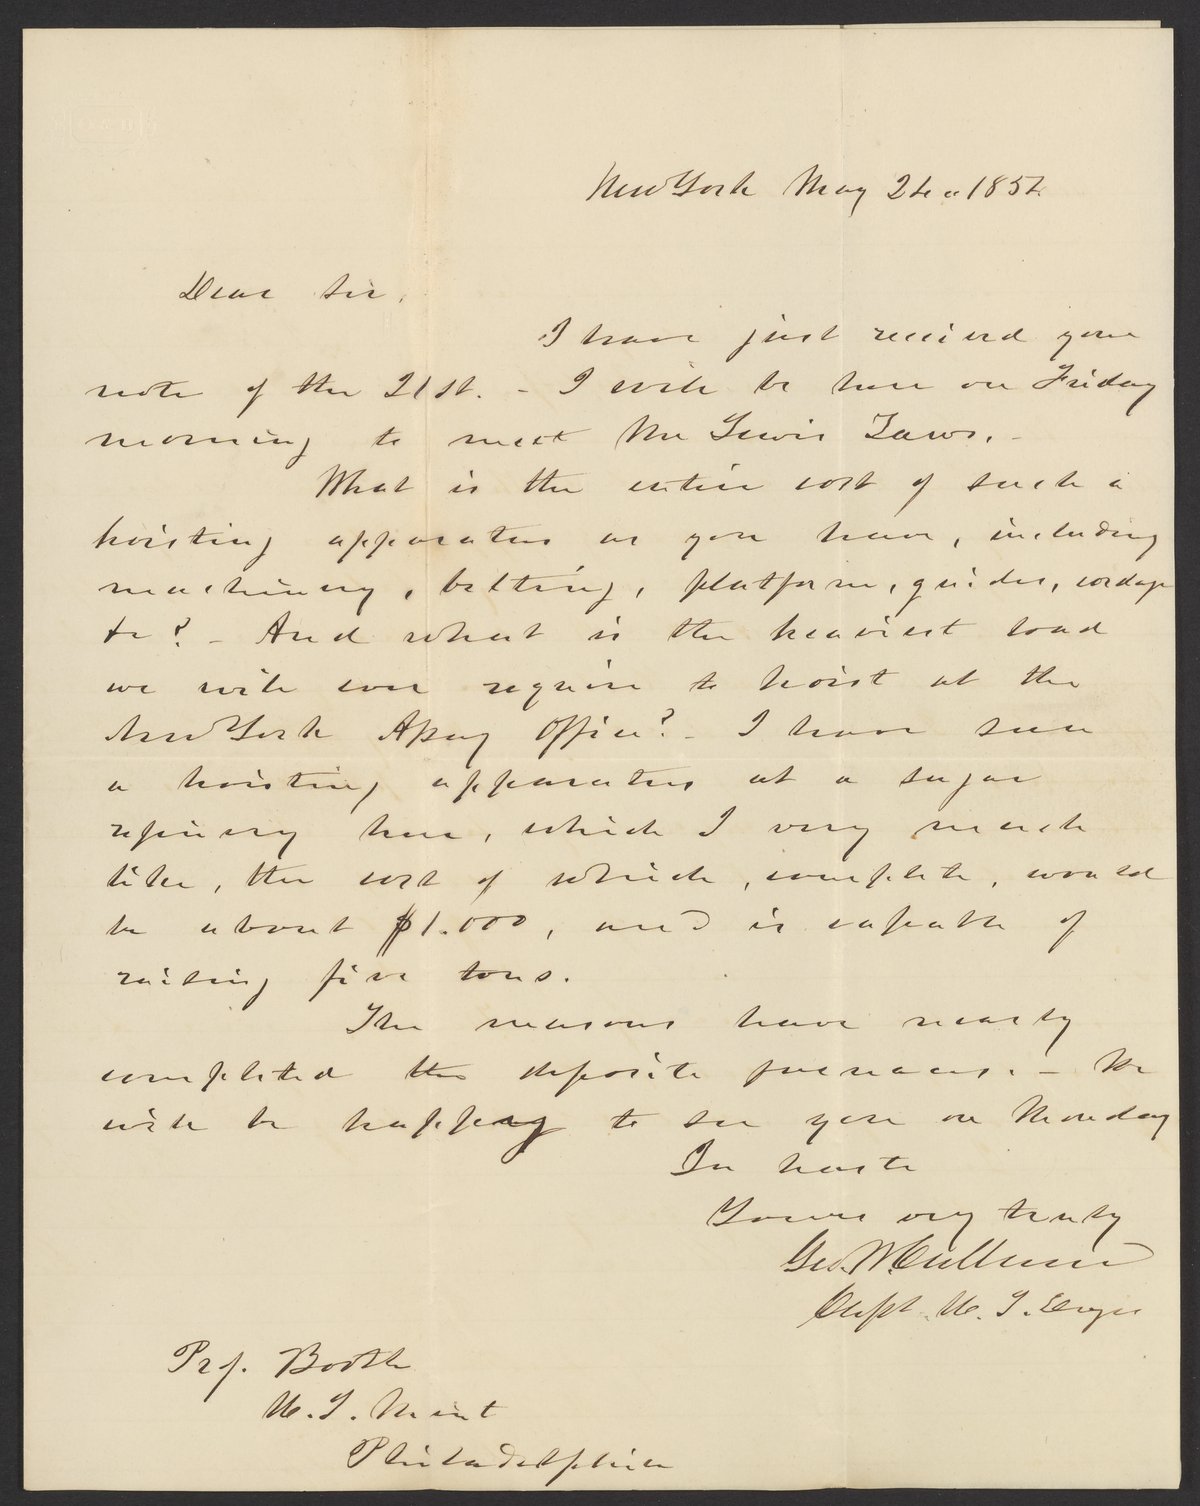 New York May 24 1854
Dear Sir,
I have just received your
note of the 21st. – I will be here on Friday
morning to meet Mr Lewis Laws. –
What is the entire cost of such a
hoisting apparatus as you have, including
machinery, belting, platform, guides, cordage
&c? – And what is the heaviest load
we will ever require to hoist at the
New York Assay Office? – I have seen
a hoisting apparatus at a sugar
refinery here, which I very much
like, the cost of which, complete, would
be about $1.000, and is capable of
raising five tons.
The masons have nearly
completed the deposite furnaces. – We
will be happy to see you on Monday
In haste
Yours very truly
Geo. W. Cullum
Capt. U. S. Engrs
Prof. Booth
U. S. Mint
Philadelphia